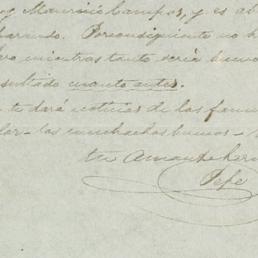 y Mauricio Campos, y es al
Por consiguiente no h
mientras tanto sería bueno
sultado cuanto antes.
te dará noticias de las fam
las muchachas buenas
tu Amante her
Pepe